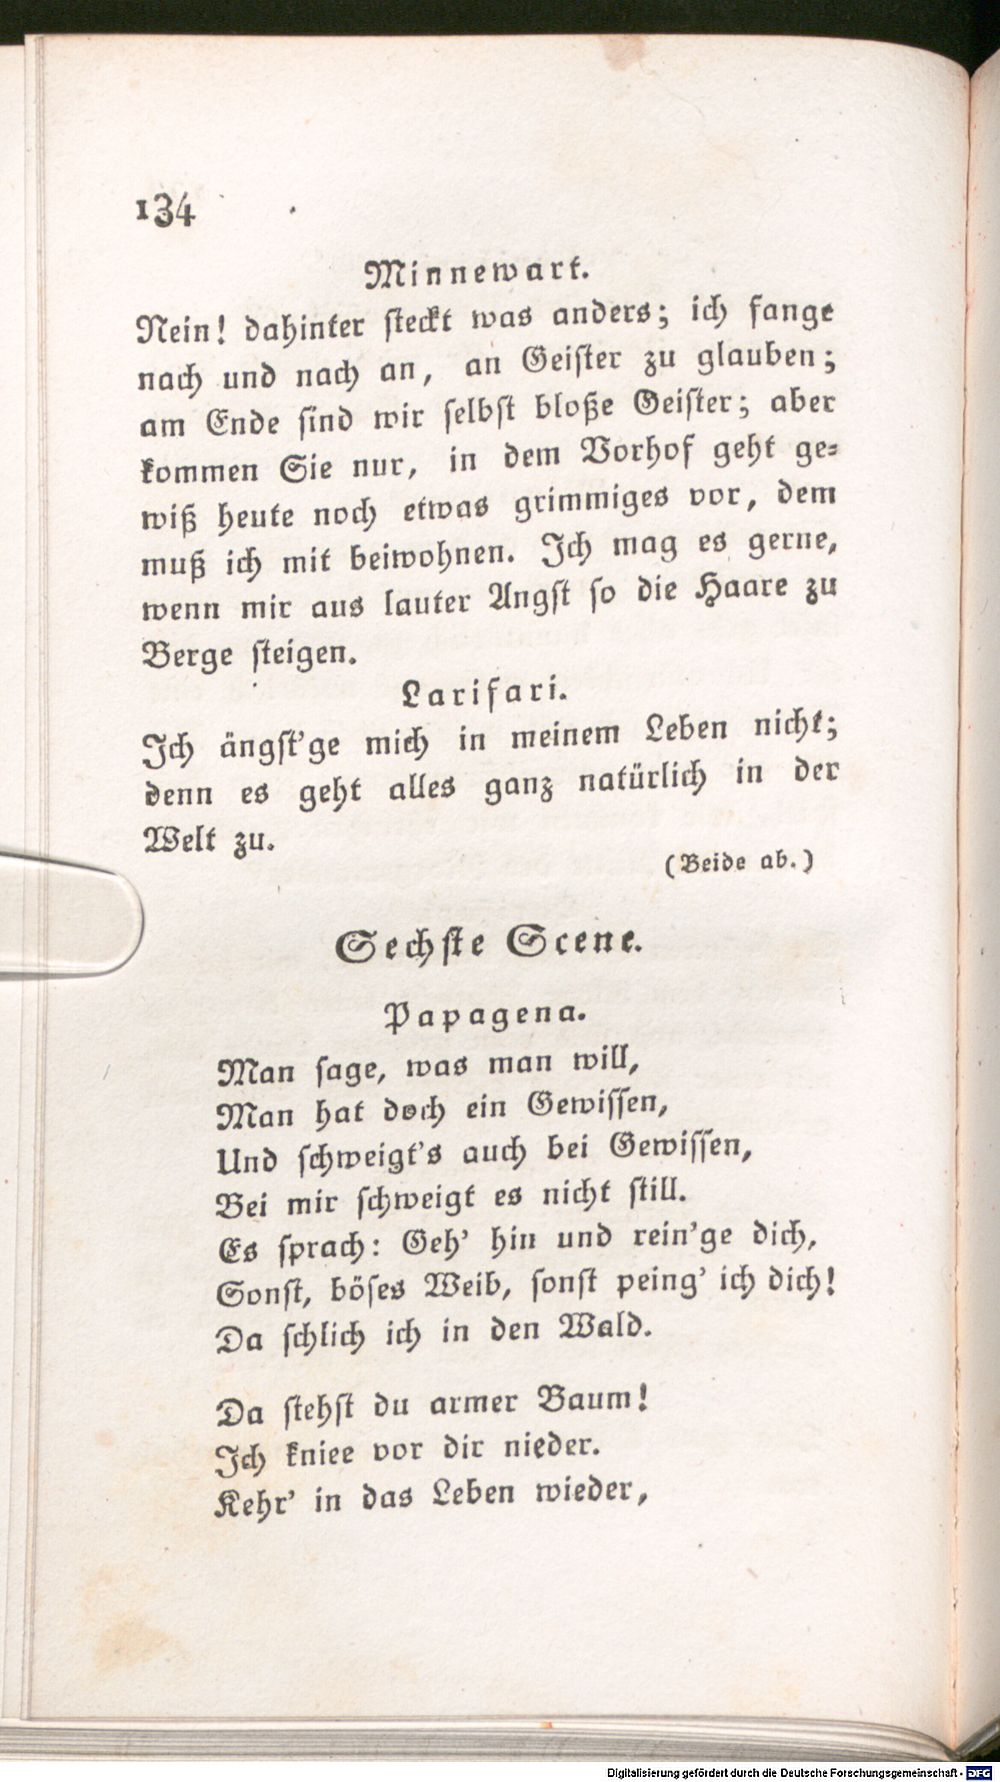 134
Minnewart.
Nein! dahinter steckt was anders; ich fange
nach und nach an, an Geister zu glauben;
am Ende sind wir selbst bloße Geister; aber
kommen Sie nur, in dem Vorhof geht ge-
wiß heute noch etwas grimmiges vor, dem
muß ich mit beiwohnen. Ich mag es gerne,
wenn mir aus lauter Angst so die Haare zu
Berge steigen.
Larifari.
Ich ängst'ge mich in meinem Leben nicht;
denn es geht alles ganz natürlich in der
Welt zu.
(Beide ab.)
Sechste Scene.
Papagena.
Man sage, was man will,
Man hat doch ein Gewissen,
Und schweigt's auch bei Gewissen,
Bei mir schweigt es nicht still.
Es sprach: Geh' hin und rein'ge dich,
Sonst, böses Weib, sonst peing' ich dich!
Da schlich ich in den Wald.
Da stehst du armer Baum!
Ich kniee vor dir nieder.
Kehr' in das Leben wieder,
Digitalisierung gefördert durch die Deutsche Forschungsgemeinschaft - DFG